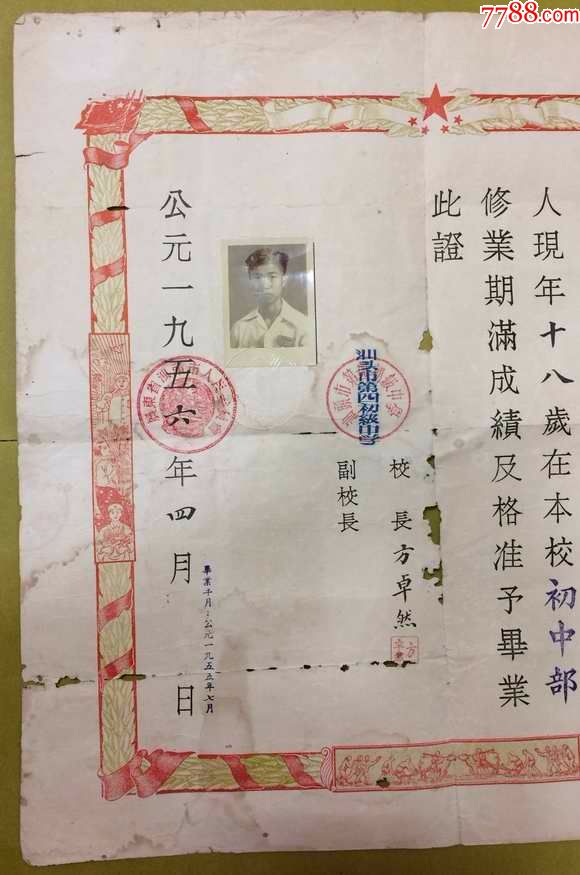 7788.com
人現年十八歲在本校初中部
修業期滿成績及格准予畢業
此證
校長方卓然
副校長
汕头市第四初級中学
公元一九五六年四月日
畢業年月：公元一九五五年七月